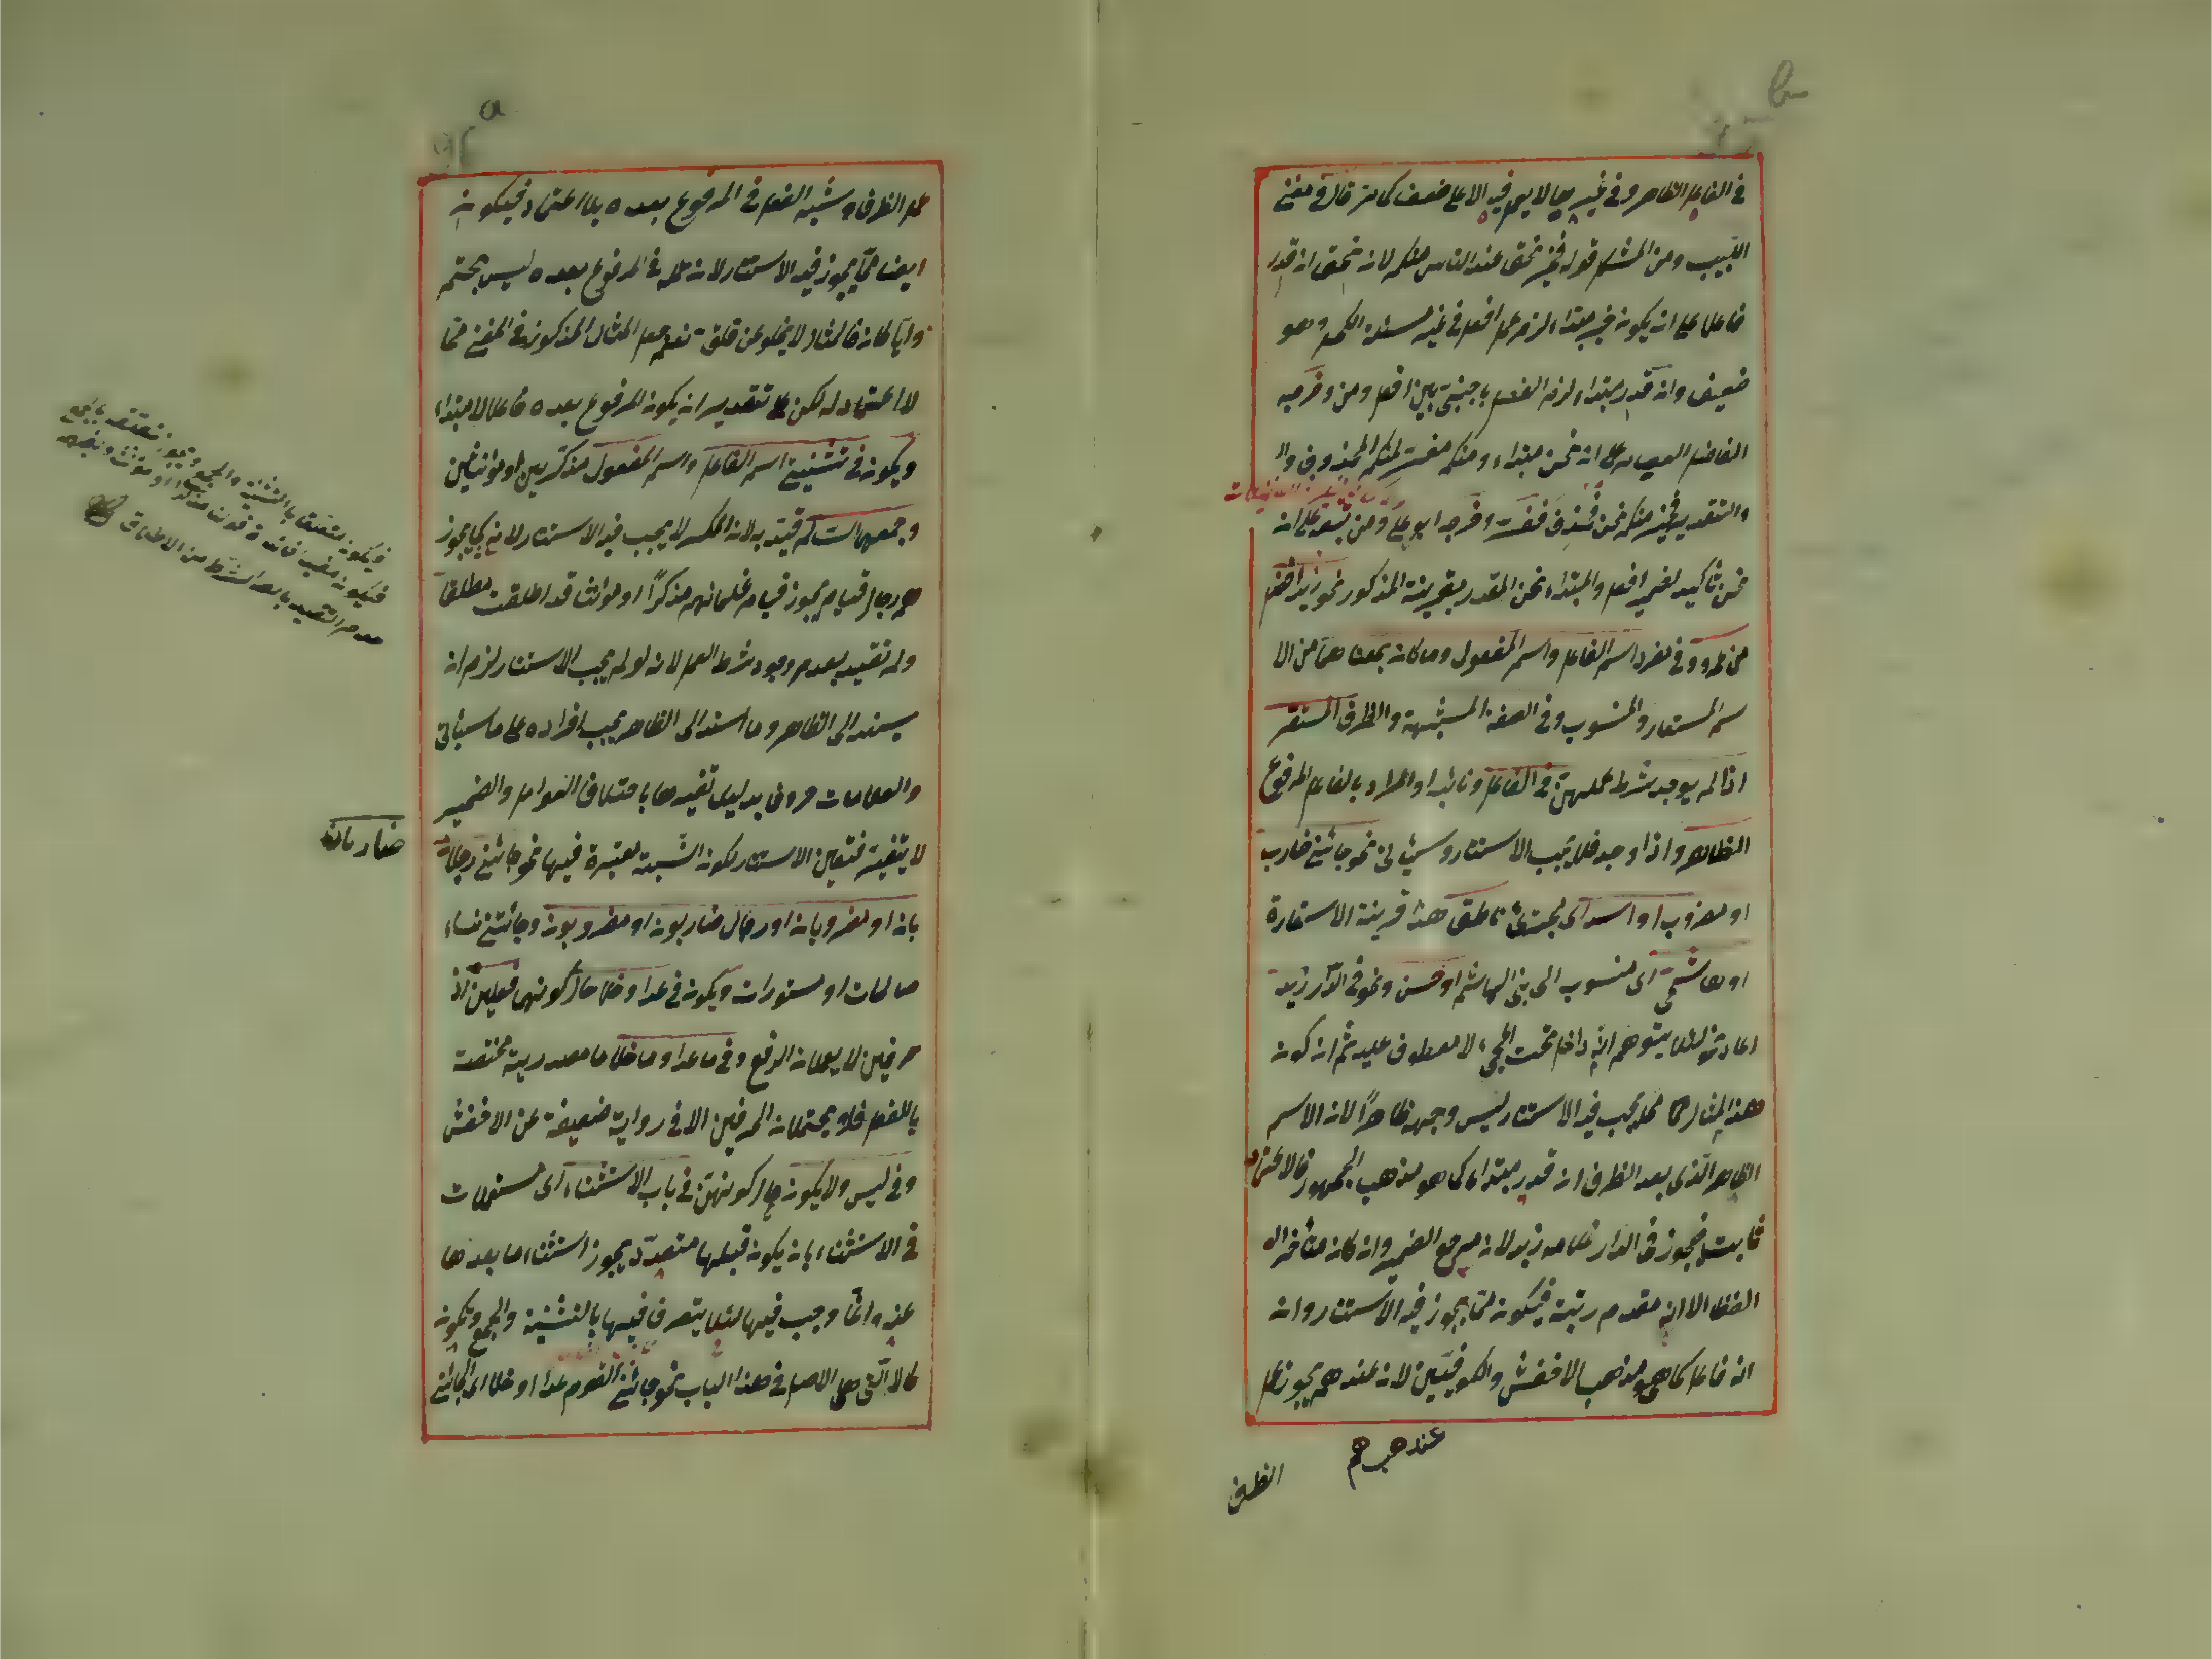 في الفاعل الظاهر وفي غيرها لا يعمل فيه الا على ضعف كما مر قال في مغني
اللبيب ومن المشكل قوله فخير نحن عند الناس منكم لان نحن ان قدر
فاعلا على ان يكون خير مبتداء لزم عمل افعل في غير مسئلة الكحل وهو
ضعيف وان قدر مبتداء لزم الفصل باجنبي بين افعل ومن وخرجه
الفاضل العصام على ان نحن مبتداء ومنكم مفسر لمنكم المحذوف
والتقدير فخير منكم نحن فحذف ففسر وخرجه ابو علي ومن تبعه على ان
نحن تأكيد لضمير افعل والمبتداء نحن المقدر بقرينة المذكور نحو زيد افضل
من عمرو وفي مفرد اسم الفاعل واسم المفعول وما كان بمعناهما من الا
سم المستعار والمنسوب وفي الصفة المشبهة والظرف المستقر
اذا لم يوجد شرط عملهن في الفاعل ونائبه والمراد بالفاعل المرفوع
الظاهر واذا وجد فلا يجب الاستتار وسيأتي نحو جائني ضارب
او مضروب او اسد اى مجترئ ناطق هذا قرينة الاستعارة
او هاشمي اى منسوب الى بني الهاشم او حسن ونحو في الدار زيد
اعاد نحو لئلا يتوهم انه داخل تحت المجئ لا معطوف عليه ثم ان كون
هذا المثال مما يجب فيه الاستتار ليس وجهه ظاهرا لان الاسم
الظاهر الذى بعد الظرف ان قدر مبتداء كما هو مذهب الجمهور فالاعتماد
ثابت فيجوز في الدار غلامه زيد لان مرجع الضمير وان كان متأخر
لفظا الا انه مقدم رتبة فيكون مما يجوز فيه الاستتار وان
انه فاعل كما هو مذهب الاخفش والكوفيين لان عندهم يجوز عمل
عندهم
الظرف
عمل الظرف وشبه الفعل في المرفوع بعده بلا اعتماد فيكون
ايضا مما يجوز فيه الاستتار لان عمله في المرفوع بعده ليس بمحتم
وايا كان فالمثال لا يخلو عن قلق نعم جعل المثال المذكور في المغني مما
لا اعتماد له لكن على تقدير ان يكون المرفوع بعده فاعلا لا مبتداء
ويكون في تثنيتي اسم الفاعل واسم المفعول مذكرين او مؤنثين
وجمعهما السالم قيد به لان المكسر لا يجب فيه الاستتار لانه كما يجوز
هم رجال قيام يجوز قيام غلمانهم مذكرا او مؤنثا قد اطلقت مطلقا
ولم تقيد بعدم وجود شرط العمل لانه لو لم يجب الاستتار لزم ان
يسند الى الظاهر وما اسند الى الظاهر يجب افراده على ما سيأتي
والعلامات حروف بدليل تغيرها باختلاف العوامل والضمير
لا يتغير فتعين الاستتار لكون النسبة معتبرة فيها نحو جائني رجلان
ضاربان
بان او مضروبان او رجال ضاربون او مضروبون وجائتني نساء
صالحات او مستورات ويكون في عدا وخلا حال كونهما فعلين اذ
حرفين لا يعملان الرفع وفي ما عدا وما خلا ما مصدرية مختصة
بالفعل فلا يحتملان الحرفين الا في رواية ضعيفة عن الاخفش
وفي ليس ولا يكون حال كونهن في باب الاستثناء اى مستعملات
في الاستثناء بان يكون قبلها متعدد يجوز استثناء ما بعدها
عنه وانما وجب فيها لئلا يتصرف فيها بالتثنية والجمع وتكون
كالا التي هي الاصل في هذا الباب نحو جائني القوم عدا او خلا
فيكون متعلقا بالتثنية والجمع ويجوز
عدم التقييد بالشرط من الاطلاق